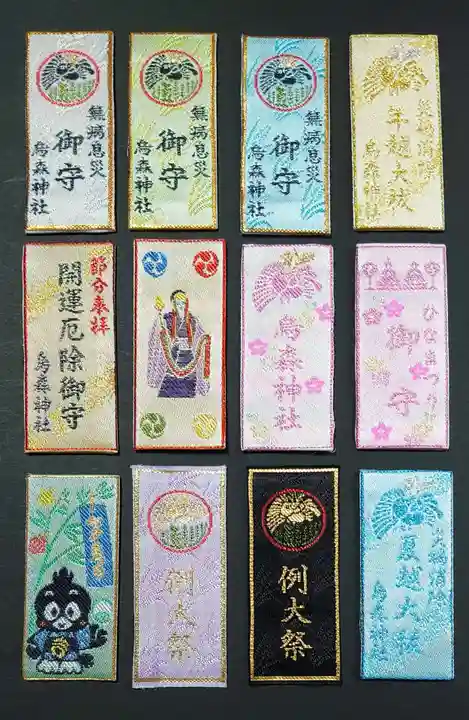 無病息災
御守
烏森神社
無病息災
御守
烏森神社
無病息災
御守
烏森神社
災禍消除
年越大祓
烏森神社
節分奉拝
開運厄除御守
烏森神社
烏森神社
ひなまつり
御守
例大祭
例大祭
夏越大祓